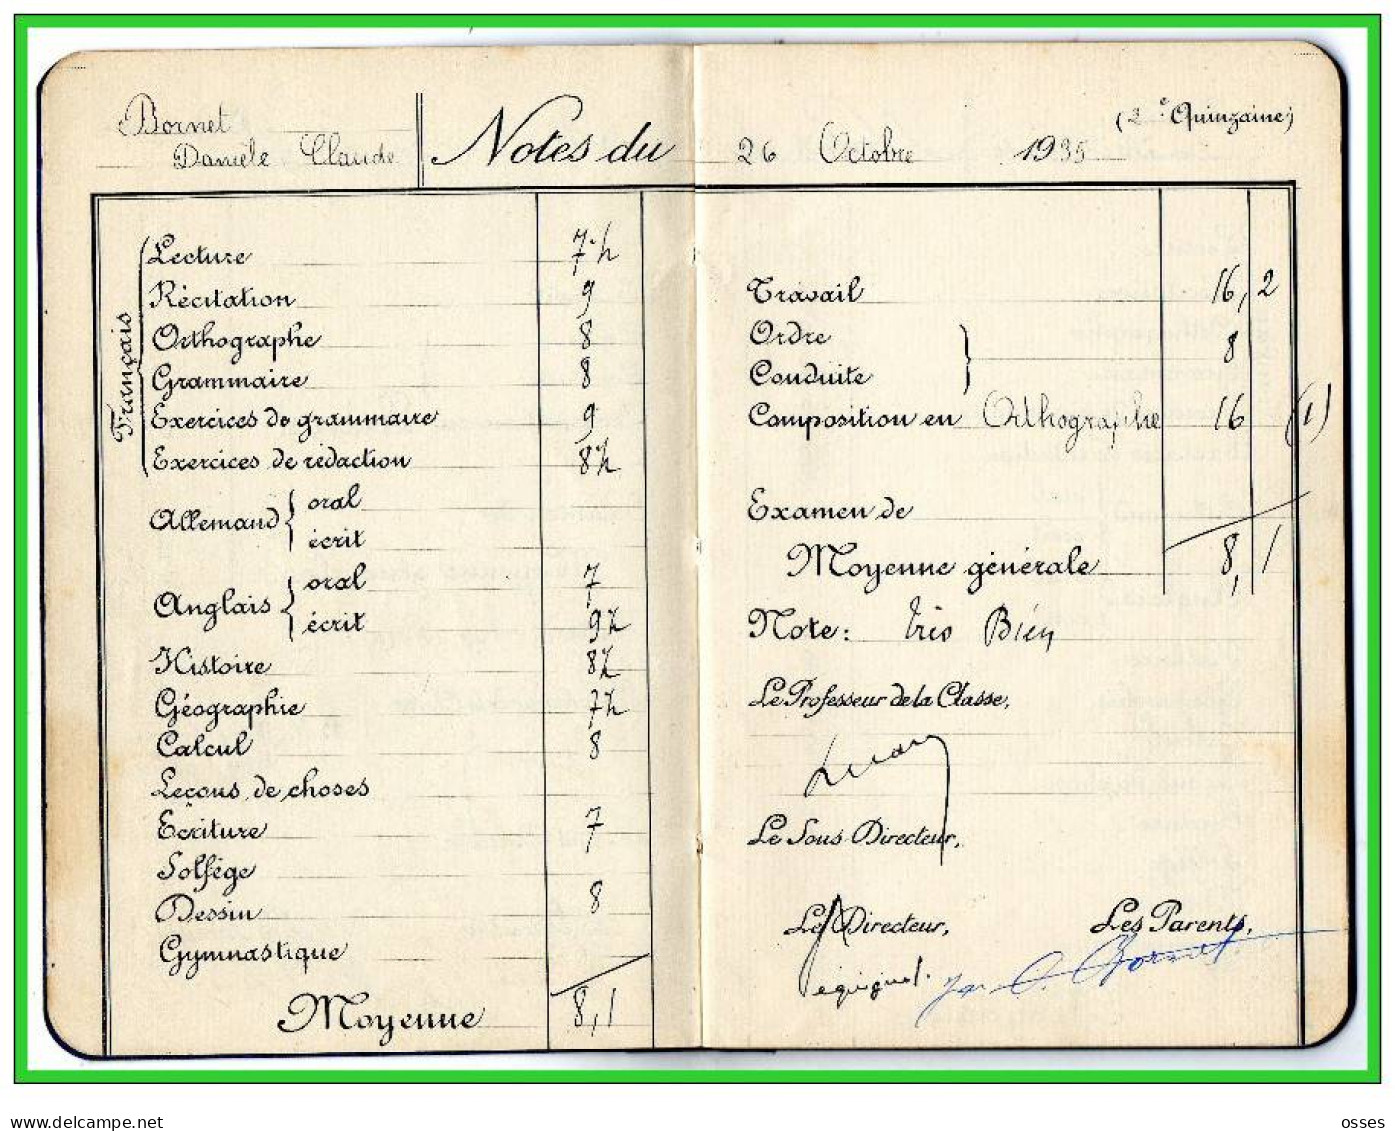 Bornet
Danièle Claude
Notes du 26 Octobre 1935
(2e Quinzaine)
Français
Lecture 7 ½
Récitation 9
Orthographe 8
Grammaire 8
Exercices de grammaire 9
Exercices de rédaction 8 ½
Allemand { oral
écrit
Anglais { oral 7
écrit 9 ½
Histoire 8 ½
Géographie 7 ½
Calcul 8
Leçons de choses
Ecriture 7
Solfège
Dessin 8
Gymnastique
Moyenne 8,1
Travail 16,2
Ordre
Conduite } 8
Composition en Orthographe 16 (1)
Examen de
Moyenne générale 8,1
Note: Très Bien
Le Professeur de la Classe,
Le Sous Directeur,
Le Directeur,
Les Parents,
Bornet
delcampe.net
osses